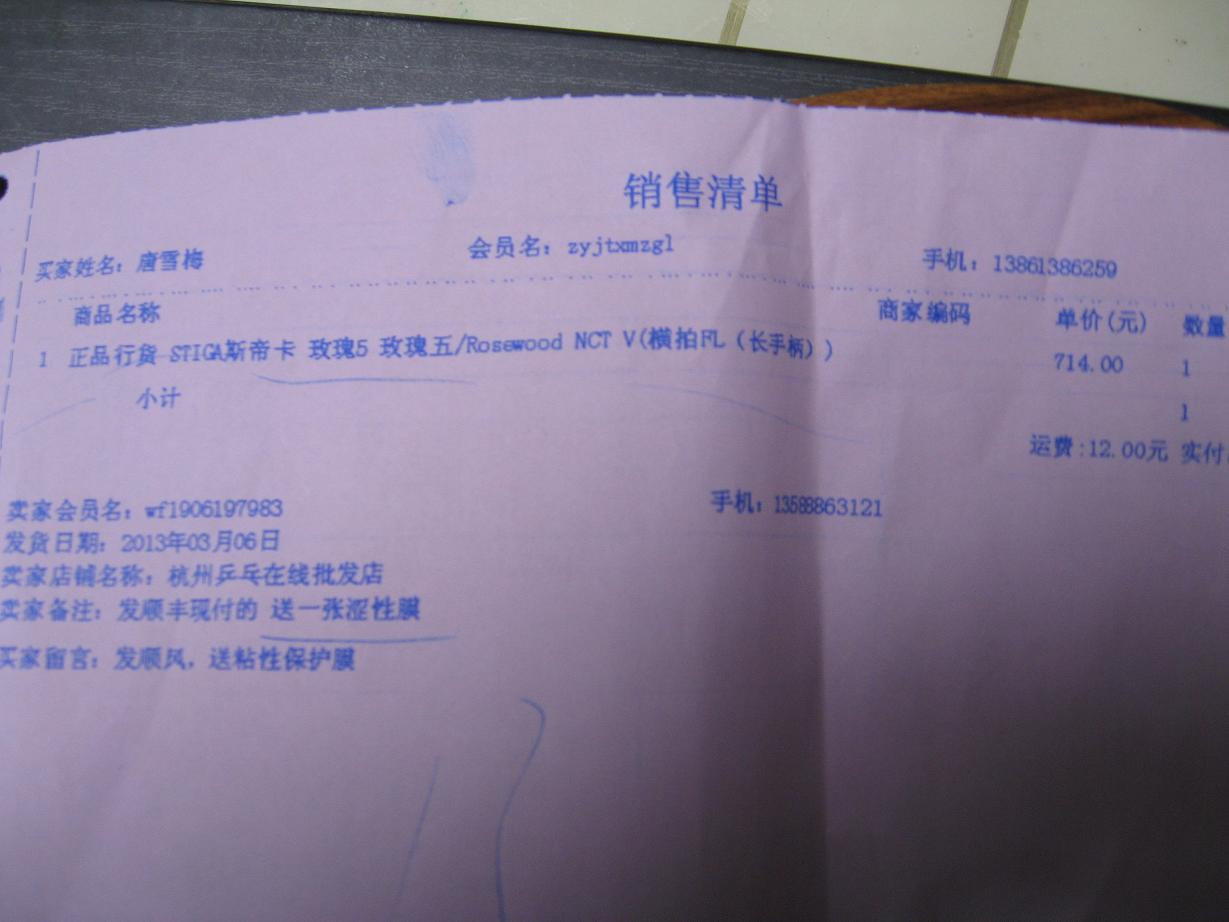 销售清单
买家姓名：唐雪梅 会员名：zyjtxmzgl 手机：13861386259
商品名称 商家编码 单价(元) 数量
1 正品行货 STIGA斯帝卡 玫瑰5 玫瑰五/Rosewood NCT V(横拍FL（长手柄）) 714.00 1
小计 1
运费:12.00元 实付
卖家会员名：wf1906197983 手机：13588863121
发货日期：2013年03月06日
卖家店铺名称：杭州乒乓在线批发店
卖家备注：发顺丰现付的 送一张涩性膜
买家留言：发顺风，送粘性保护膜